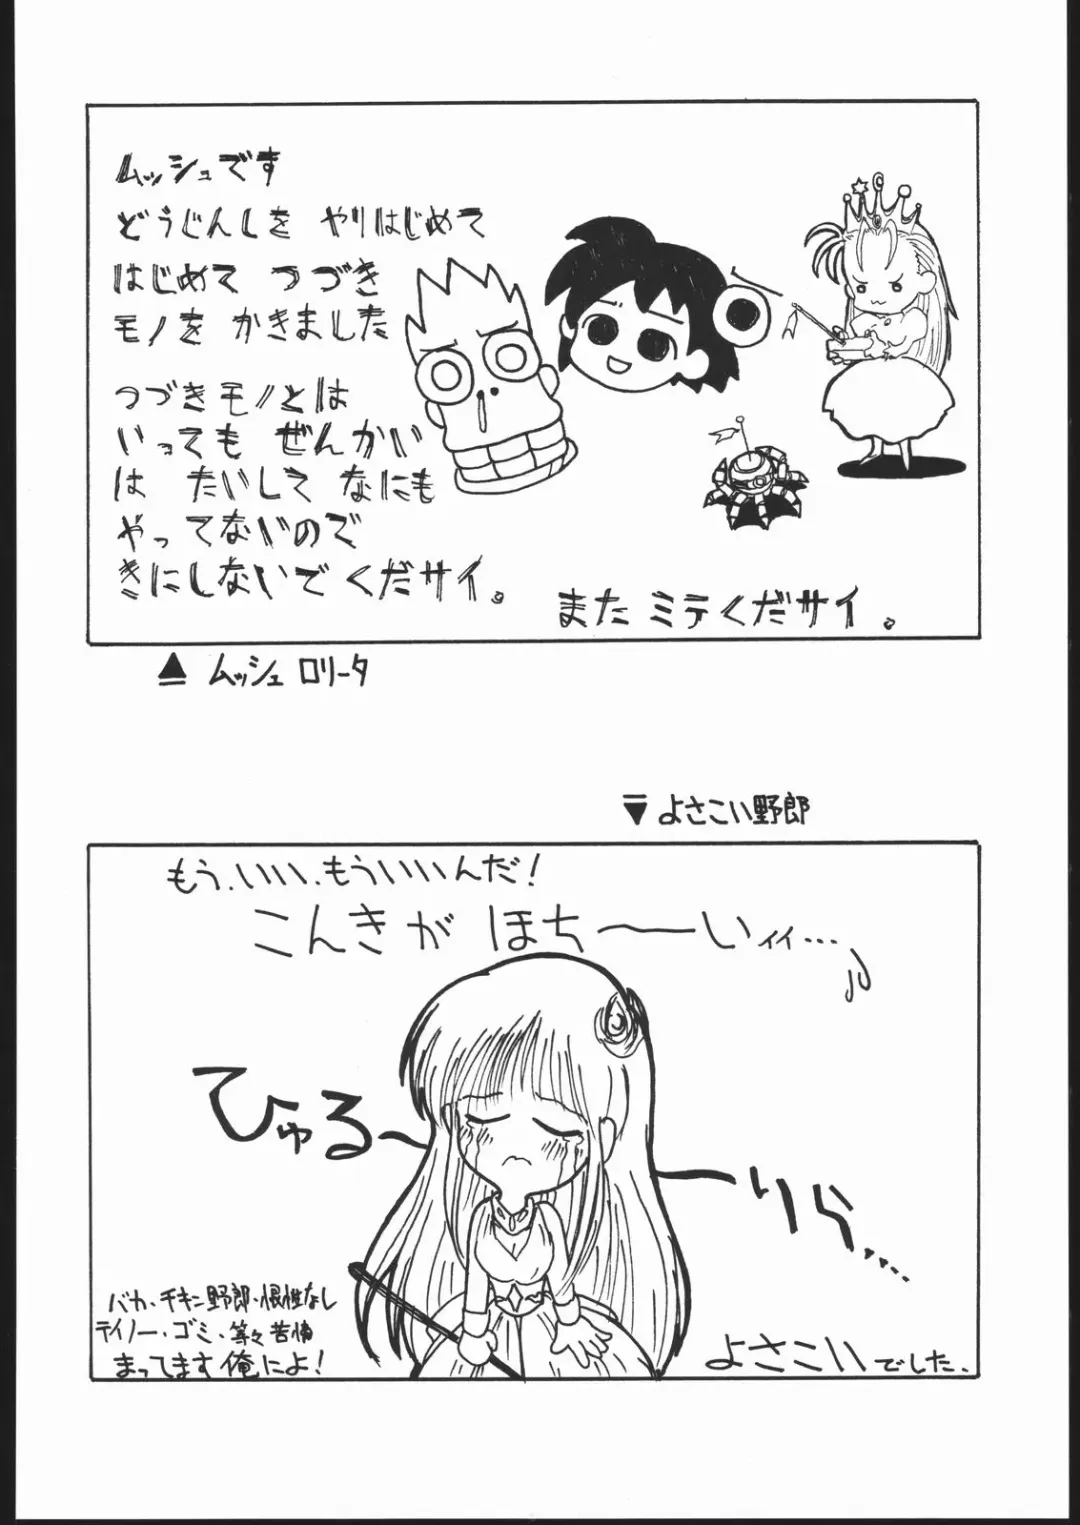 ムッシュです
どうじんしを やりはじめて
はじめて つづき
モノを かきました
つづきモノとは
いっても ぜんかい
は たいして なにも
やってないので
きにしないで くだサイ。
また ミテくだサイ。
▲ ムッシュ ロリータ
▼ よさこい野郎
もう、いい、もういいんだ!
こんきが ほち〜〜いィィ…♪
ひゅる〜
ーりら…
バカ・チキン野郎・根性なし
テイノー・ゴミ・等々苦情
まってます俺によ!
よさこいでした、